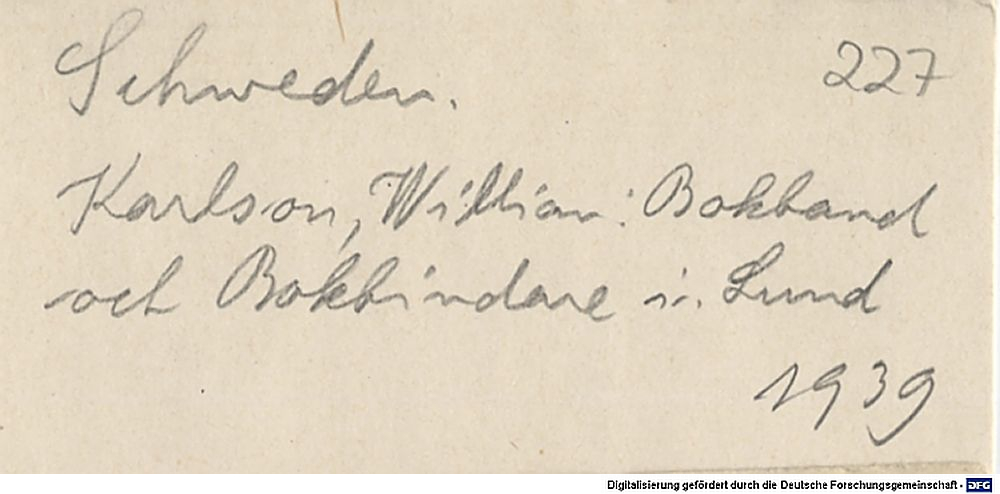 Schweden. 227
Karlson, William: Bokband
och Bokbindare i. Lund
1939
Digitalisierung gefördert durch die Deutsche Forschungsgemeinschaft - DFG